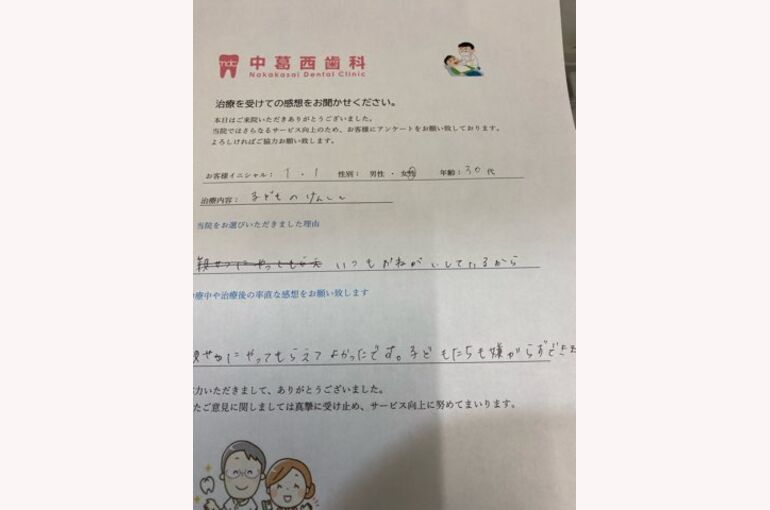 mdc 中葛西歯科
Nakakasai Dental Clinic
治療を受けての感想をお聞かせください。
本日はご来院いただきありがとうございました。
当院ではさらなるサービス向上のため、お客様にアンケートをお願い致しております。
よろしければご協力お願い致します。
お客様イニシャル： 性別： 男性 ・ 女性 年齢：30 代
治療内容： 子どものけんしん
当院をお選びいただきました理由
いつもおねがいしているから
療中や治療後の率直な感想をお願い致します
にやってもらえてよかったです。子どもたちも嫌がらずできた
力いただきまして、ありがとうございました。
たご意見に関しましては真摯に受け止め、サービス向上に努めてまいります。